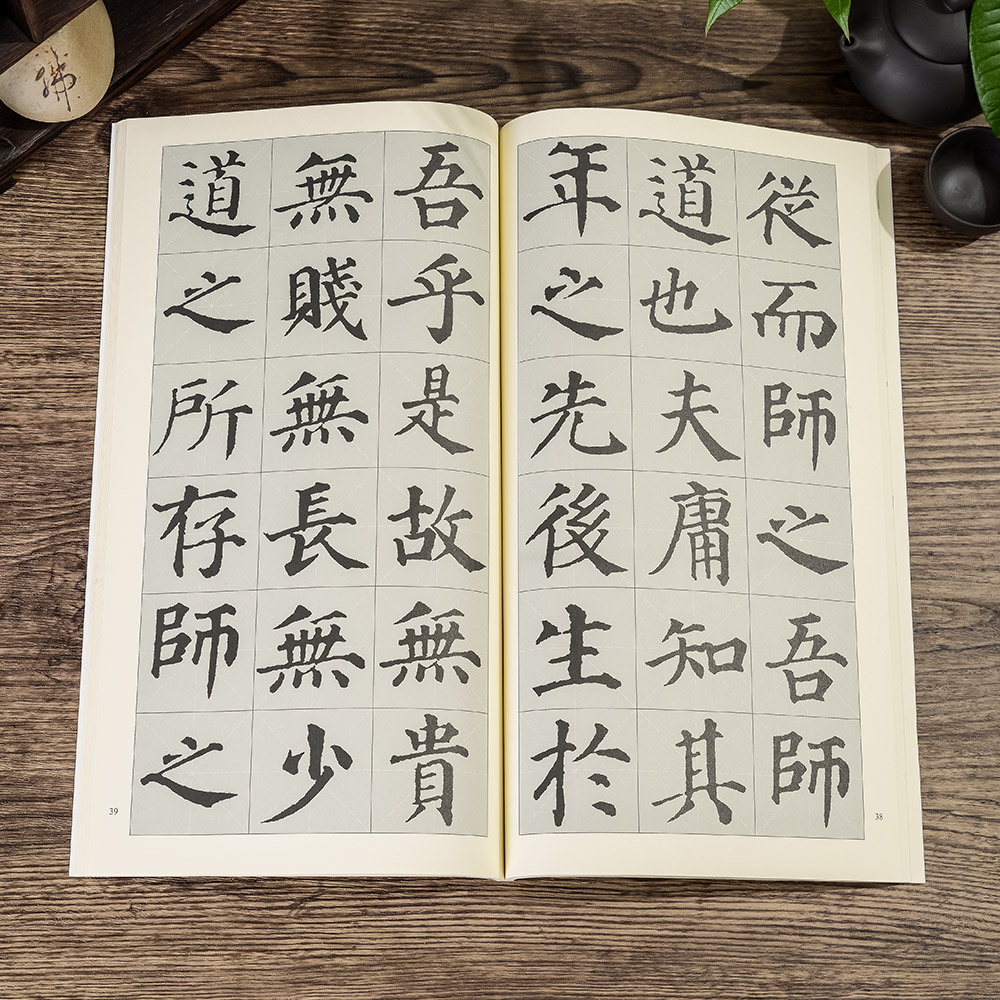 從而師之吾師
道也夫庸知其
年之先後生於
吾乎是故無貴
無賤無長無少
道之所存師之
38
39